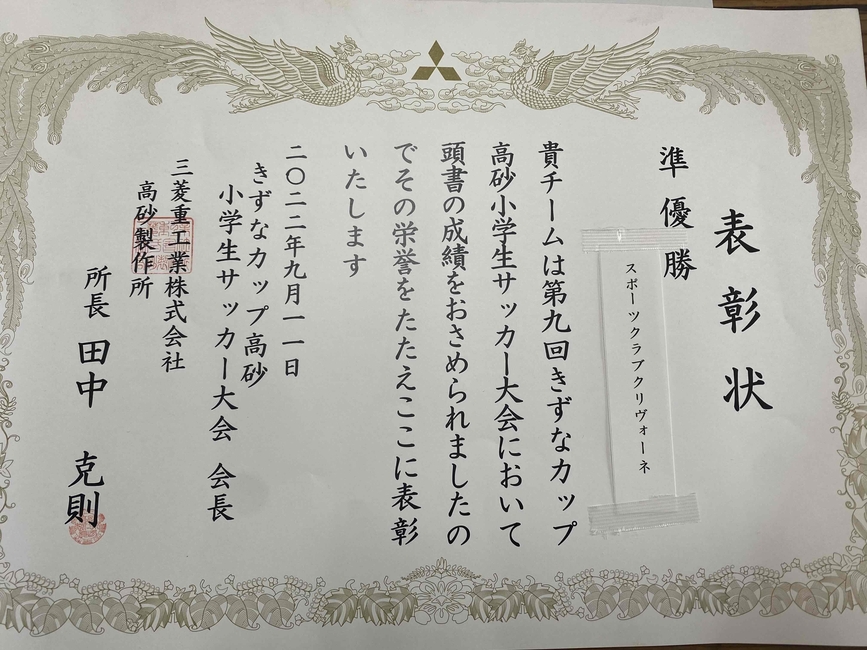 表彰状
準優勝
スポーツクラブクリヴォーネ
貴チームは第九回きずなカップ
高砂小学生サッカー大会において
頭書の成績をおさめられましたの
でその栄誉をたたえここに表彰
いたします
二〇二二年九月一一日
きずなカップ高砂
小学生サッカー大会 会長
三菱重工業株式会社
高砂製作所
所長 田中 克則